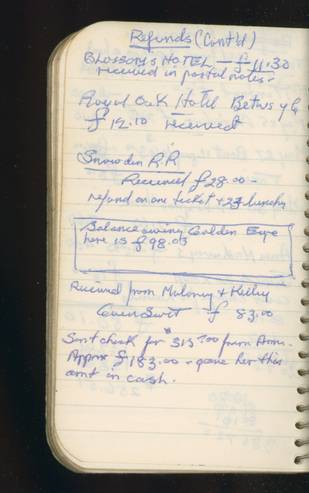 Refunds (Cont'd)
Blossoms HOTEL — £11.30
received in postal notes.
Royal Oak Hotel Betws y C
£12.10 received
Snowdon R.R
Received £28.00 -
refund on one ticket + 23 lunches
Balance owing Golden Eye
here is £98.03
Received from Maloney + Kelley
£ 83.00
Sent check for $315.00 from Amer.
Approx £183.00 - gave her this
amt in cash.